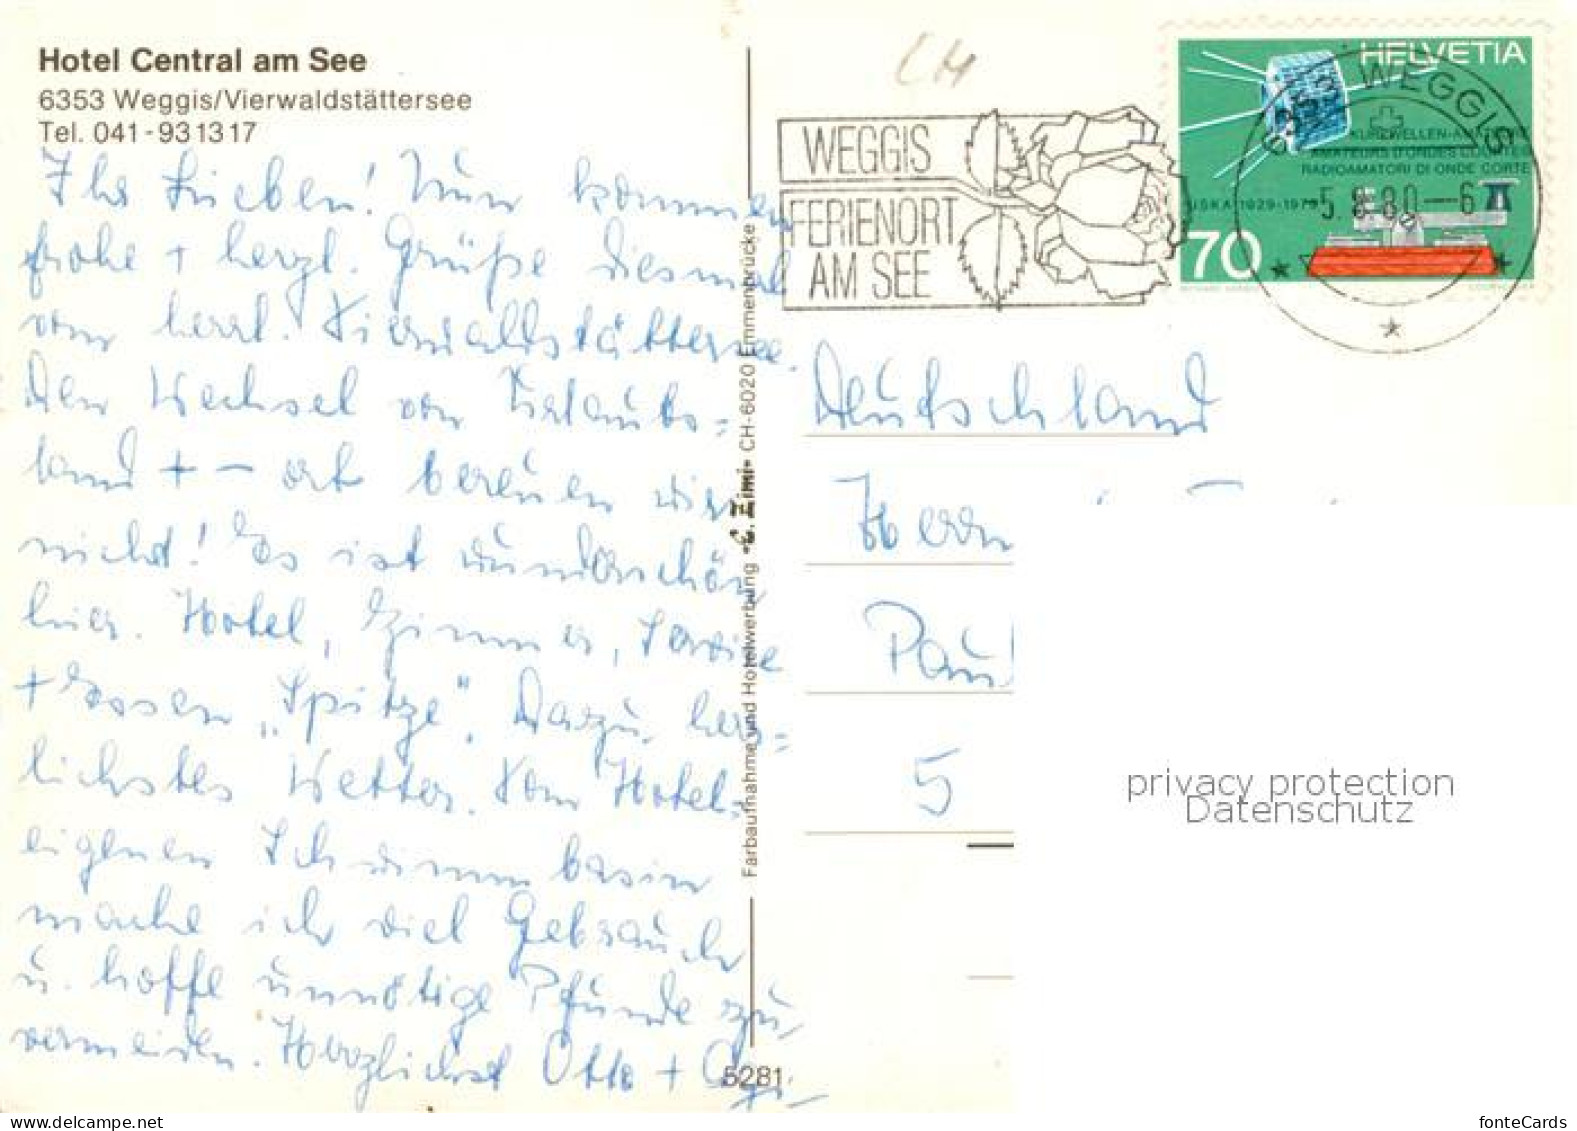 Hotel Central am See
6353 Weggis/Vierwaldstättersee
Tel. 041-931317
Ihr Lieben! Nun kommen
frohe + herzl. Grüße diesmal
vom herrl. Vierwaldstättersee.
Den Wechsel von Urlaubs=
land + - ort bereuen wir
nicht! Es ist wunderschön
hier. Hotel, Zimmer, Service
+ Essen „Spitze“. Dazu herr=
lichstes Wetter. Vom Hotel=
eigenen Schwimmbassin
mache ich viel Gebrauch
u. hoffe unnötige Pfunde zu
vermeiden. Herzlichst Otto +
5281
Farbaufnahme und Hotelwerbung «E. Zimi» CH-6020 Emmenbrücke
CH
WEGGIS
FERIENORT
AM SEE
HELVETIA
KURZWELLEN-AMATEURE
AMATEURS D'ONDES COURTES
RADIOAMATORI DI ONDE CORTE
USKA 1929-1979
70
WEGGIS
5.8.80-6
Deutschland
Herrn
Paul
5
privacy protection
Datenschutz
www.delcampe.net
fonteCards